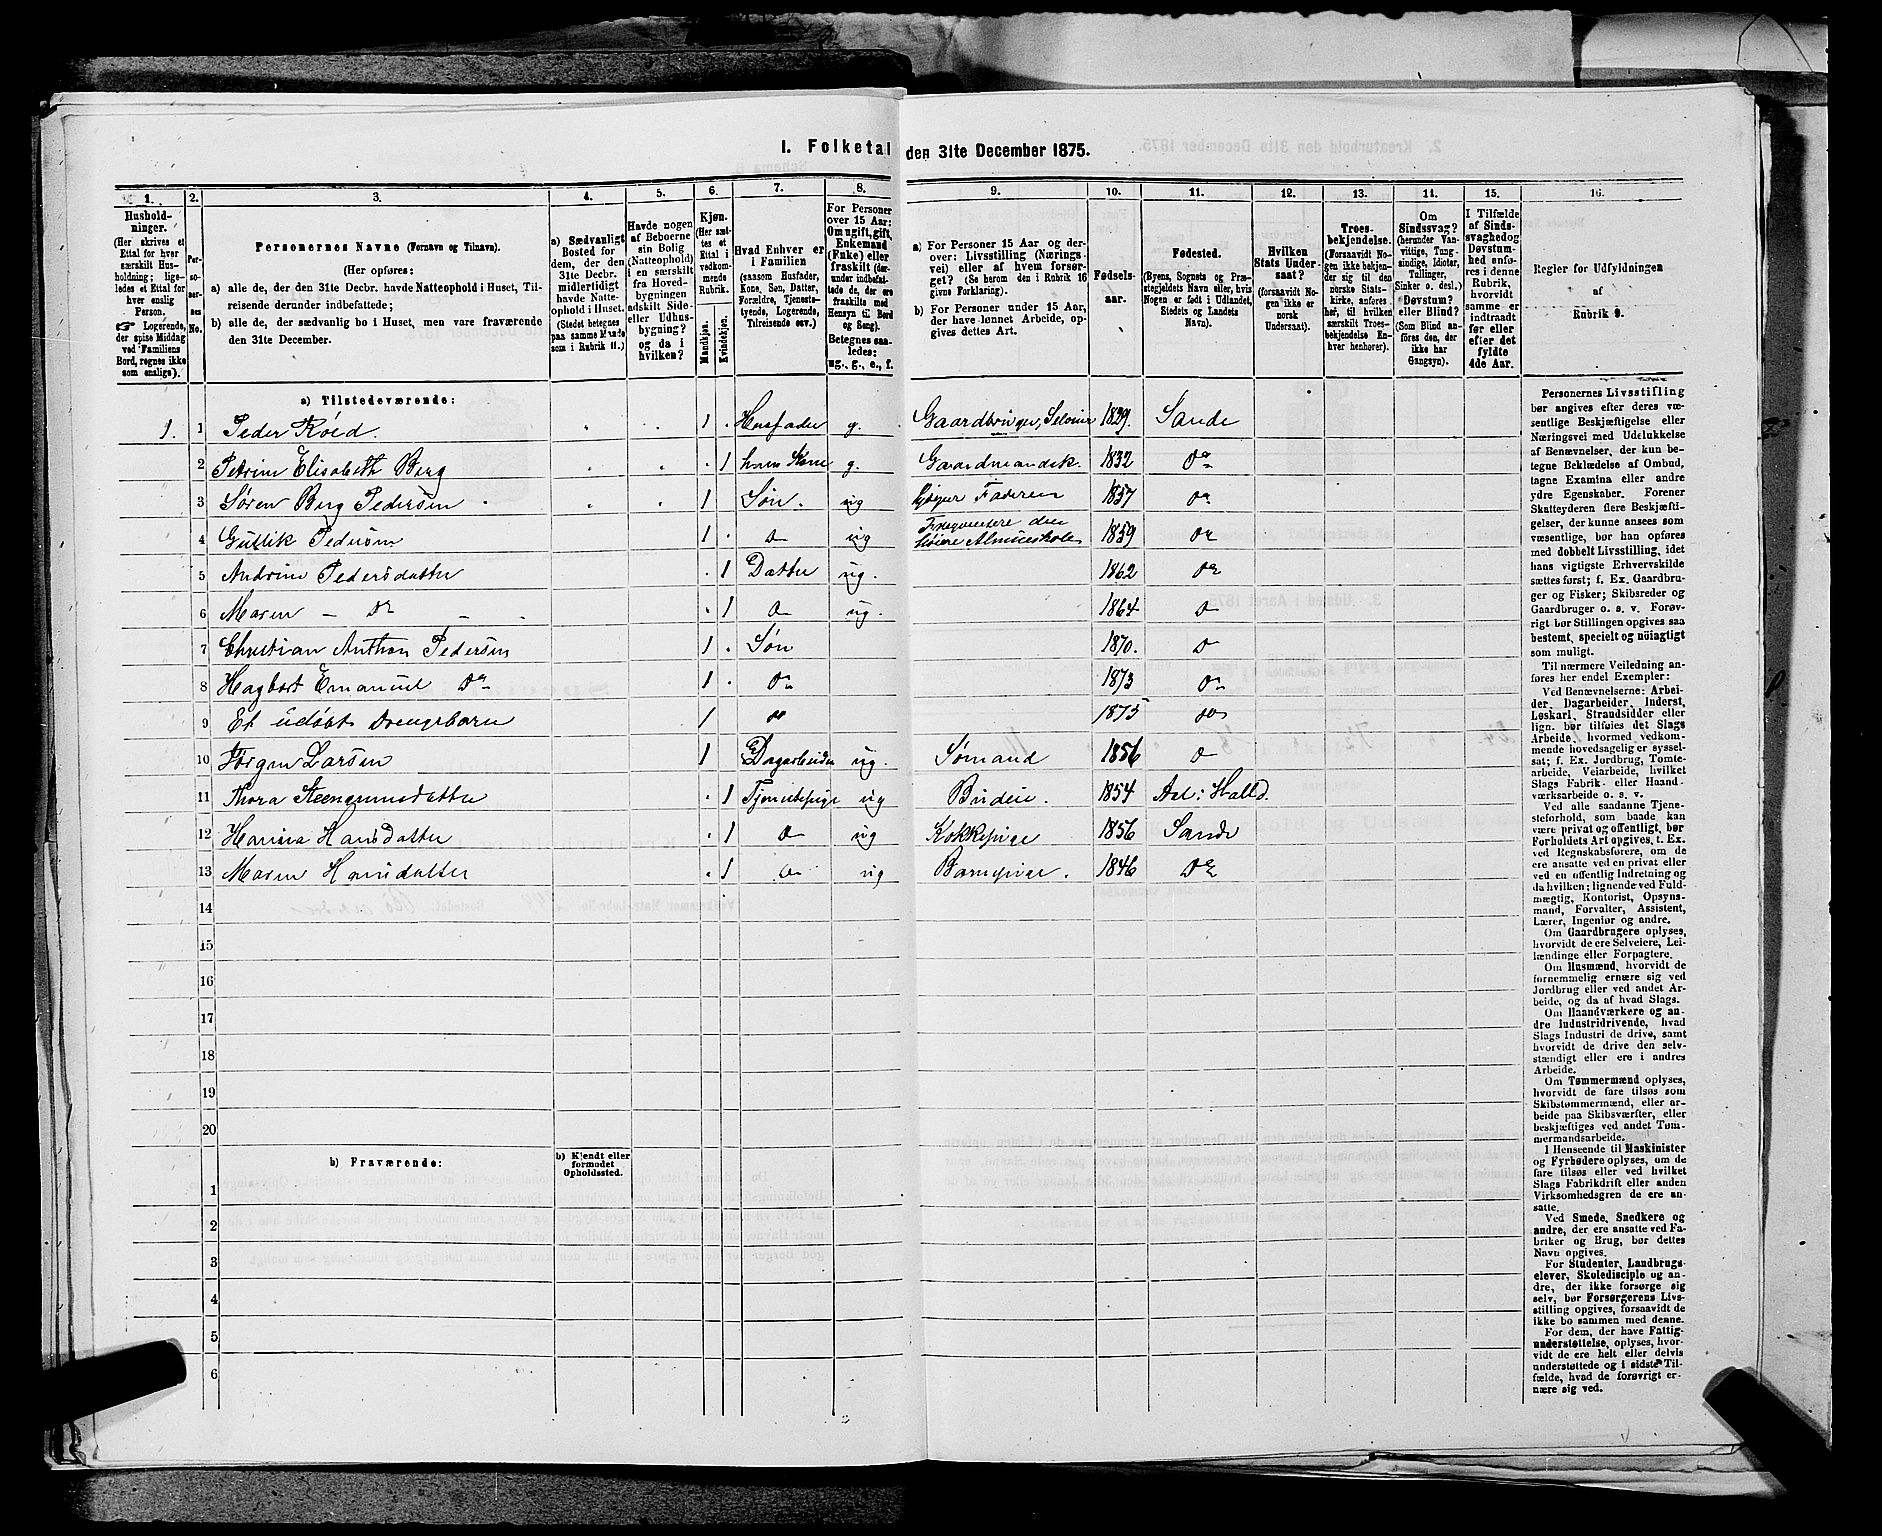 I. Folketal den 31te December 1875.
1.
2.
3.
4.
5.
6.
7.
8.
9.
10.
11.
12.
13.
14.
15.
16.
Hushold-
ninger.
(Her skrives et
Ettal for hver
særskilt Hus-
holdning; lige-
ledes et Ettal for
hver enslig
Person.
☞ Logerende,
der spise Middag
ved Familiens
Bord, regnes ikke
som enslige).
Per-
so-
ner-
nes
No.
Personernes Navne (Fornavn og Tilnavn).
(Her opføres:
a) alle de, der den 31te Decbr. havde Natteophold i Huset, Til-
reisende derunder indbefattede;
b) alle de, der sædvanlig bo i Huset, men vare fraværende
den 31te December.
a) Sædvanligt
Bosted for
dem, der den
31te Decbr.
midlertidigt
havde Natte-
ophold i Huset.
(Stedet betegnes
paa samme Maade
som i Rubrik 11.)
Havde nogen
af Beboerne
sin Bolig
(Natteophold)
i en særskilt
fra Hoved-
bygningen
adskilt Side-
eller Udhus-
bygning?
og da i
hvilken?
Kjøn.
(Her sæt-
tes et
Ettal i
vedkom-
mende
Rubrik.
Mandkjøn.
Kvindekjøn.
Hvad Enhver er
i Familien
(saasom Husfader,
Kone, Søn, Datter,
Forældre, Tjeneste-
tyende, Logerende,
Tilreisende osv.)
For Personer
over 15 Aar:
Om ugift, gift,
Enkemand
(Enke) eller
fraskilt (der-
under indbefat-
tede de, der ere
fraskilte med
Hensyn til Bord
og Seng).
Betegnes saa-
ledes:
ug., g., e., f.
a) For Personer 15 Aar og der-
over: Livsstilling (Nærings-
vei) eller af hvem forsør-
get. (Se herom den i Rubrik 16
givne Forklaring).
b) For Personer under 15 Aar,
der have lønnet Arbeide, op-
gives dettes Art.
Fødsels-
aar.
Fødested.
(Byens, Sognets og Præ-
stegjeldets Navn eller, hvis
Nogen er født i Udlandet,
Stedets og Landets
Navn).
Hvilken
Stats Under-
saat?
(forsaavidt No-
gen ikke er
norsk
Undersaat).
Troes-
bekjendelse.
(Forsaavidt No-
gen ikke bekjen-
der sig til den
norske Stats-
kirke, anføres
her, til hvilken
særskilt Troes-
bekjendelse En-
hver henhører).
Om
Sindssvag?
(herunder Van-
vittige, Tung-
sindige, Idioter,
Tullinger,
Sinker o. desl.)
Døvstum?
eller Blind?
(Som Blind an-
føres den, der
ikke har
Gangsyn).
I Tilfælde
af Sinds-
svaghed og
Døvstum-
hed anfø-
res i denne
Rubrik,
hvorvidt
samme er
indtraadt
før eller
efter det
fyldte
4de Aar.
Regler for Udfyldningen
af
Rubrik 9.
a) Tilstedeværende:
1. 1 Peder Røed. 1 Husfader g. Gaardbruger, Selveier 1829. Sande
2 Petrine Elisabeth Berg 1 hans Kone g. Gaardmandsk. 1832 Do
3 Søren Berg Pedersen 1 Søn. ug hjelper Faderen 1857 Do
4 Gullik Pedersen 1 Do ug Frequentere den høiere Almueskole 1859 Do
5 Andrine Pedersdatter 1 Datter ug. 1862 Do
6 Maren — Do — 1 Do ug. 1864 Do
7 Christian Anthon Pedersen 1 Søn 1870. Do
8 Hagbart Emanuel Do 1 Do 1873 Do
9 Et udøbt Drengebarn 1 Do 1875 Do
10 Jørgen Larsen 1 Dagarbeider ug. Sømand 1856 Do
11 Thora Steengrimsdatter 1 Tjenestepige ug Budeie. 1854 Aal i Halld.
12 Hanna Hansdatter 1 Do ug Kokkepige 1856 Sande
13 Maren Hansdatter 1 Do ug Barnepige. 1846 Do
14
15
16
17
18
19
20
b) Fraværende:
b) Kjendt eller
formodet
Opholdssted.
1
2
3
4
5
6
Personernes Livsstilling
bør angives efter deres væ-
sentlige Beskjæftigelse eller
Næringsvei med Udelukkelse
af Benævnelser, der kun be-
tegne Beklædelse af Ombud,
tagne Examina eller andre
ydre Egenskaber. Forener
Skatteyderen flere Beskjæfti-
gelser, der kunne ansees som
væsentlige, bør han opføres
med dobbelt Livsstilling, idet
hans vigtigste Erhvervskilde
sættes først; f. Ex. Gaardbru-
ger og Fisker; Skibsreder og
Gaardbruger o. s. v. Forøv-
rigt bør Stillingen opgives saa
bestemt, specielt og nöiagtigt
som muligt.
Til nærmere Veiledning an-
føres her endel Exempler:
Ved Benævnelserne: Arbei-
der, Dagarbeider, Inderst,
Løskarl, Strandsidder eller
lign. bør tilføies det Slags
Arbeide, hvormed vedkom-
mende hovedsagelig er syssel-
sat; f. Ex. Jordbrug, Tomte-
arbeide, Veiarbeide, hvilket
Slags Fabrik- eller Haand-
værksarbeide o. s. v.
Ved alle saadanne Tjene-
steforhold, som baade kan
være privat og offentligt, bør
Forholdets Art opgives, t. Ex.
ved Regnskabsførere, om de
ere ansatte ved en privat eller
ved en offentlig Indretning og
da hvilken; lignende ved Fuld-
mægtig, Kontorist, Opsyns-
mand, Forvalter, Assistent,
Lærer, Ingeniør og andre.
Om Gaardbrugere oplyses,
hvorvidt de ere Selveiere, Lei-
lændinge eller Forpagtere.
Om Husmænd, hvorvidt de
fornemmelig ernære sig ved
Jordbrug eller ved andet Ar-
beide, og da af hvad Slags.
Om Haandværkere og an-
dre Industridrivende, hvad
Slags Industri de drive, samt
hvorvidt de drive den selv-
stændigt eller ere i andres
Arbeide.
Om Tømmermænd oplyses,
hvorvidt de fare tilsøs som
Skibstømmermænd, eller ar-
beide paa Skibsværfter, eller
beskjæftiges ved andet Tøm-
mermandsarbeide.
I Henseende til Maskinister
og Fyrbødere oplyses, om de
fare tilsøs eller ved hvilket
Slags Fabrikdrift eller anden
Virksomhedsgren de ere an-
satte.
Ved Smede, Snedkere og
andre, der ere ansatte ved Fa-
briker og Brug, bør dettes
Navn opgives.
For Studenter, Landbrugs-
elever, Skoledisciple og an-
dre, der ikke forsørge sig
selv, bør Forsørgerens Livs-
stilling opgives, forsaavidt de
ikke bo sammen med denne.
For dem, der have Fattig-
understøttelse, oplyses, hvor-
vidt de ere helt eller delvis
understøttede og i sidste Til-
fælde, hvad de forøvrigt er-
nære sig ved.